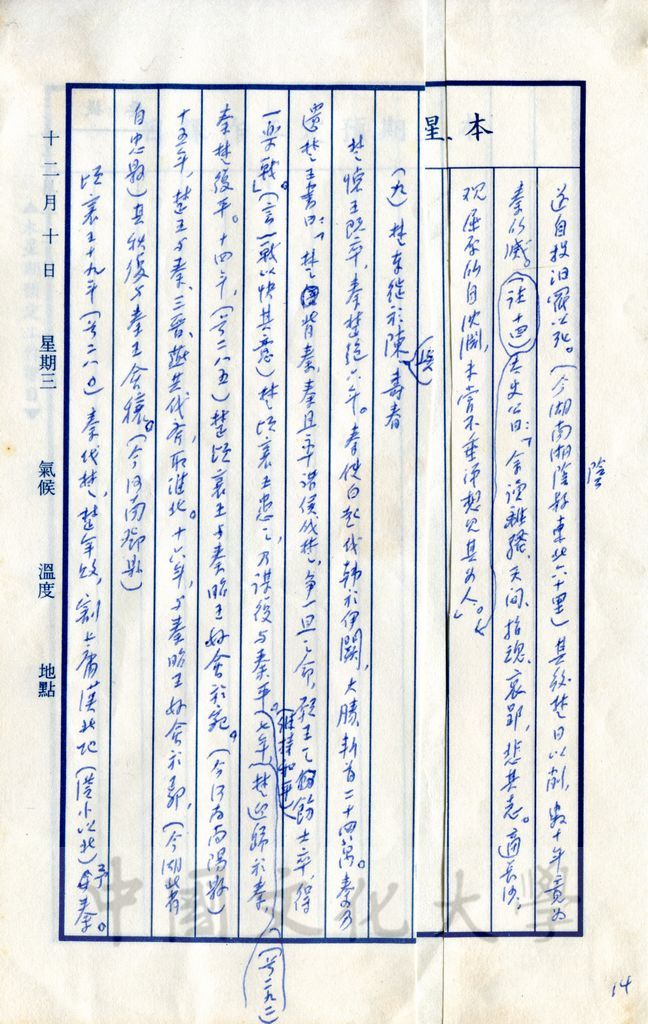 本星期
遂自投汨羅以死。(今湖南湘陰縣東北六十里)其後楚日以削,數十年竟為
陰
秦所滅。(註十四)太史公曰:「余讀離騷、天問、招魂、哀郢,悲其志。適長沙,
觀屈原所自沈淵,未嘗不垂涕,想見其為人。」
(九)楚東徙於陳、壽春
楚懷王既卒,秦楚絕六年。秦使白起伐韓於伊闕,大勝,斬首二十四萬。秦乃
遺楚王書曰:「楚背秦,秦且率諸侯伐楚,爭一旦之命,願王之飭士卒,得
一樂戰」。(言一戰以快其意)楚頃襄王患之,乃謀復與秦平。(維持和平)七年,楚迎婦於秦,(前二九二)
秦楚復平。十四年,(前二八五)楚頃襄王與秦昭王好會於宛。(今河南南陽縣)
十五年,楚王與秦、三晉、燕共伐齊,取淮北。十六年,與秦昭王好會於鄢,(今湖北省
自忠縣)其秋復與秦王會穰。(今河南鄧縣)
頃襄王十九年(前二八〇)秦伐楚,楚軍敗,割上庸漢北地(漢水以北)予秦。
十二月十日 星期三 氣候 溫度 地點
中國文化大學
14